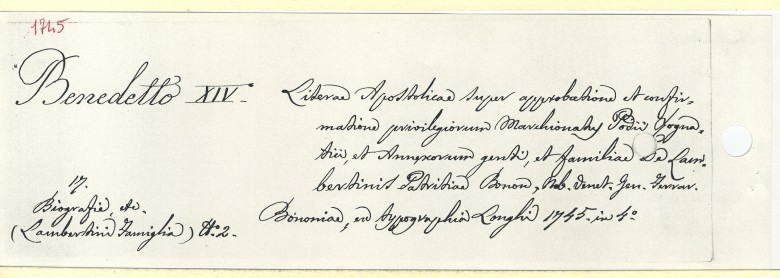 1745
Benedetto XIV.
Literae Apostolicae super approbatione et confir-
matione privilegiorum Marchionatus Podii Rogna-
tici, et Annexorum genti, et familiae De Lam-
bertinis Patritiae Bonon, Nob. Venet. Jen. Ferrar.
Bononiae, ex typographia Longhi 1745. in 4°
17.
Biografie, etc.
(Lambertini Famiglia) N.° 2.